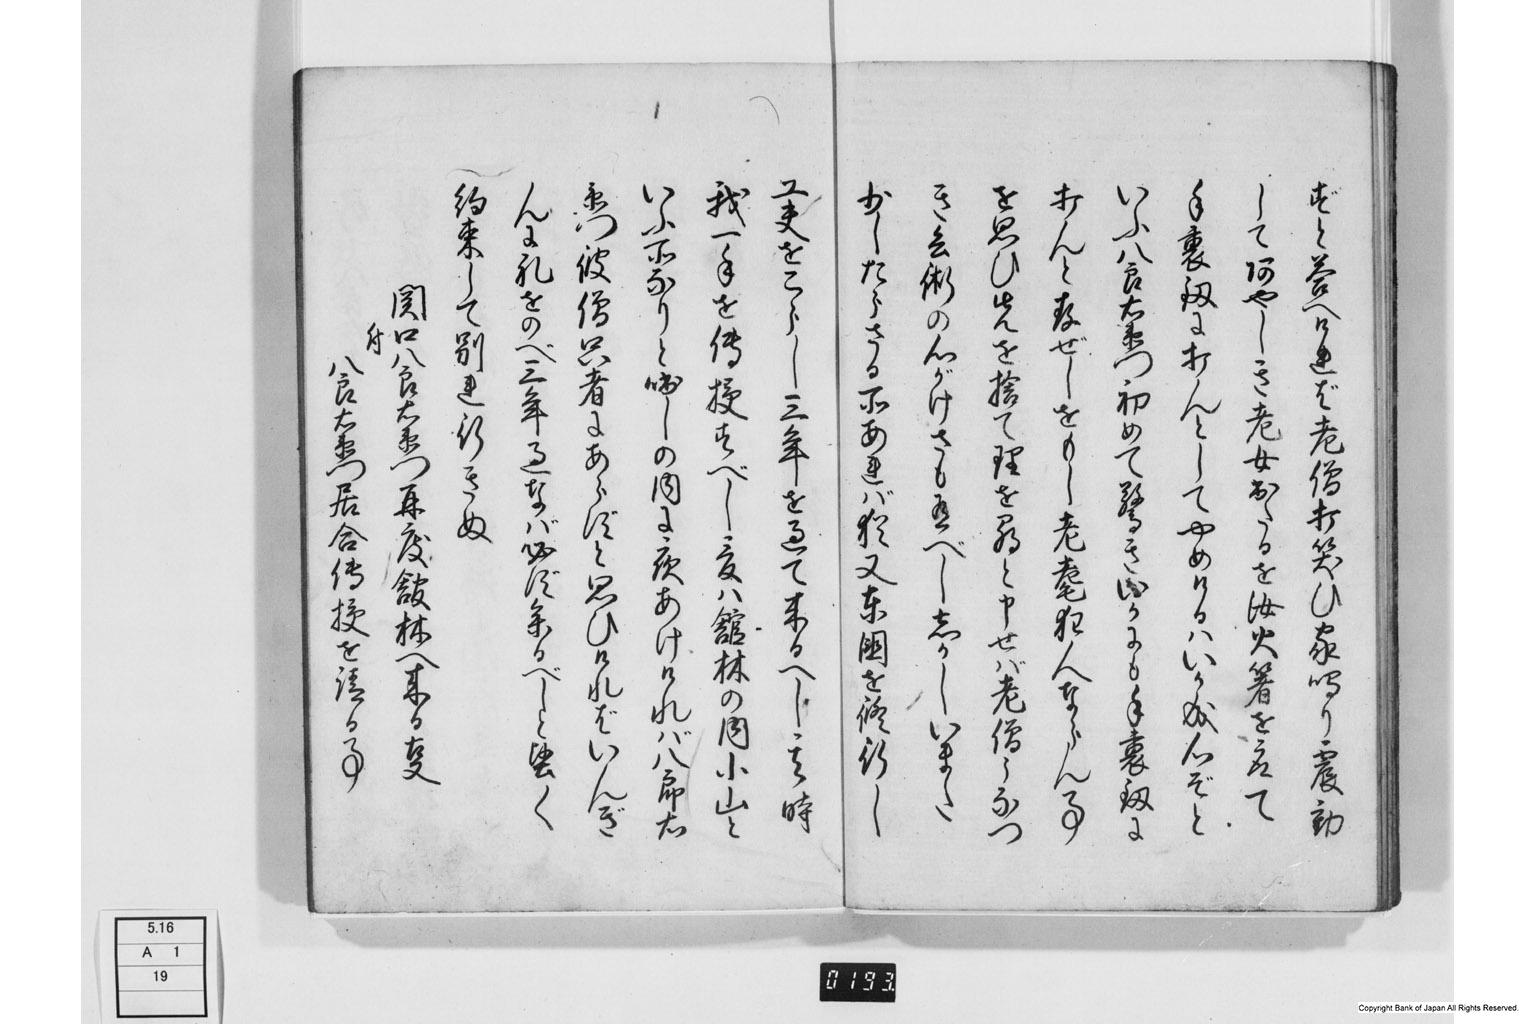 ずと答へけれバ老僧打笑ひ家鳴り震動
してあやしき老女出たるを汝火箸を取て
手裏剱に打んとしてやめけるハいかゞ成心ぞと
いふ八郎右衛門初めて驚き誠に手裏剱に
打んと存ぜしをもし老耄狂人ならん事
を思ひ先を捨て理を尋と申せバ老僧うなつ
き兵術の心がけさも有べし志かしいまた
少したらさる所あれバ猶又東国を修行し
工夫をこらし三年を過て来るへし其時
我一手を伝授すべし家ハ舘林の内小山と
いふ所なりと咄しの内に夜あけければ八郎右
衛門彼僧只者にあらずと思ひければいんぎ
んに礼をのべ三年過なバ必ず参るべしと堅く
約束して別れ行きぬ
関口八郎右衛門再度舘林へ来る事
付
八郎右衛門居合伝授を請る事
5.16
A 1
19
0193
Copyright Bank of Japan All Rights Reserved.